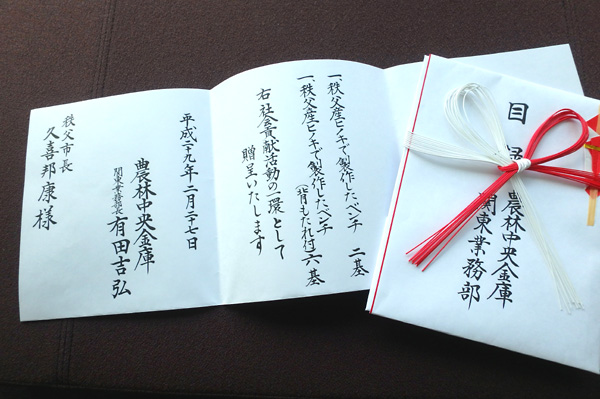 一、秩父産ヒノキで製作したベンチ 二基
一、秩父産ヒノキで製作したベンチ(背もたれ付)六基
右 社会貢献活動の一環として
贈呈いたします
平成二十九年二月二十七日
農林中央金庫
関東業務部長 有田吉弘
秩父市長
久喜邦康様
目
農林中央金庫
関東業務部